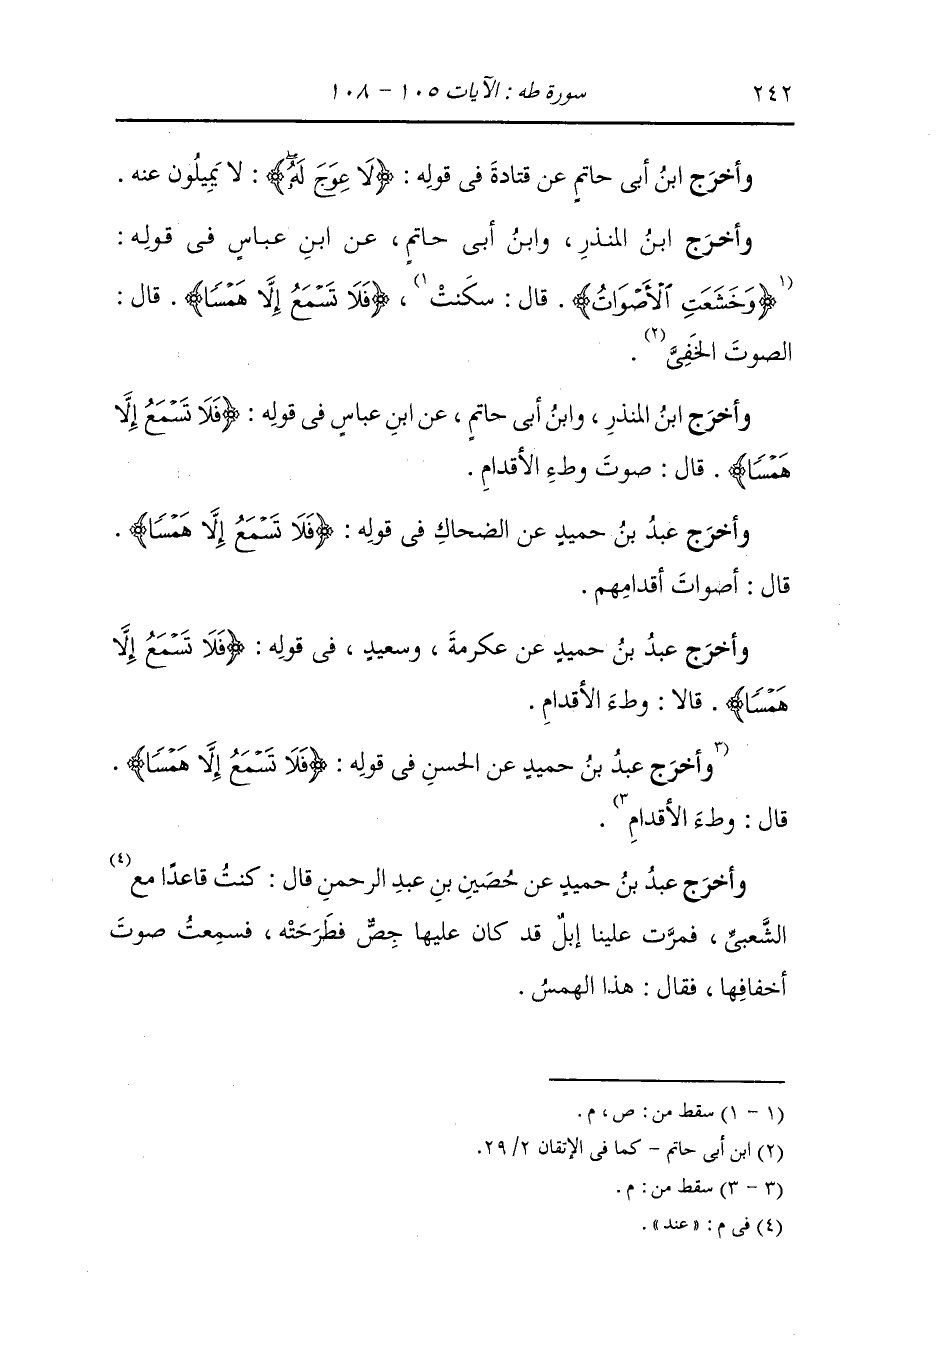 ٢٤٢ سورة طه : الآيات ١٠٥ - ١٠٨
وأخرَج ابنُ أبى حاتمٍ عن قتادةَ فى قولِه : ﴿لَا عِوَجَ لَهُۥۖ﴾ : لا يَمِيلُون عنه .
وأخرَج ابنُ المنذرِ ، وابنُ أبى حاتمٍ ، عن ابنِ عباسٍ فى قولِه :
(١﴿وَخَشَعَتِ ٱلْأَصْوَاتُ﴾ . قال : سكَنتْ١) ، ﴿فَلَا تَسْمَعُ إِلَّا هَمْسًا﴾ . قال :
الصوتَ الخَفِىَّ(٢) .
وأخرَج ابنُ المنذرِ ، وابنُ أبى حاتمٍ ، عن ابنِ عباسٍ فى قولِه : ﴿فَلَا تَسْمَعُ إِلَّا
هَمْسًا﴾ . قال : صوتَ وطءِ الأقدامِ .
وأخرَج عبدُ بنُ حميدٍ عن الضحاكِ فى قولِه : ﴿فَلَا تَسْمَعُ إِلَّا هَمْسًا﴾ .
قال : أصواتَ أقدامِهم .
وأخرَج عبدُ بنُ حميدٍ عن عكرمةَ ، وسعيدٍ ، فى قولِه : ﴿فَلَا تَسْمَعُ إِلَّا
هَمْسًا﴾ . قالا : وطءَ الأقدامِ .
(٣وأخرَج عبدُ بنُ حميدٍ عن الحسنِ فى قولِه : ﴿فَلَا تَسْمَعُ إِلَّا هَمْسًا﴾ .
قال : وطءَ الأقدامِ٣) .
وأخرَج عبدُ بنُ حميدٍ عن حُصَينِ بنِ عبدِ الرحمنِ قال : كنتُ قاعدًا مع(٤)
الشَّعبىِّ ، فمرَّت علينا إبلٌ قد كان عليها جِصٌّ فطَرَحَتْه ، فسمِعتُ صوتَ
أخفافِها ، فقال : هذا الهمسُ .
(١ - ١) سقط من : ص ، م .
(٢) ابن أبى حاتم - كما فى الإتقان ٢/ ٢٩.
(٣ - ٣) سقط من : م .
(٤) فى م : « عند » .